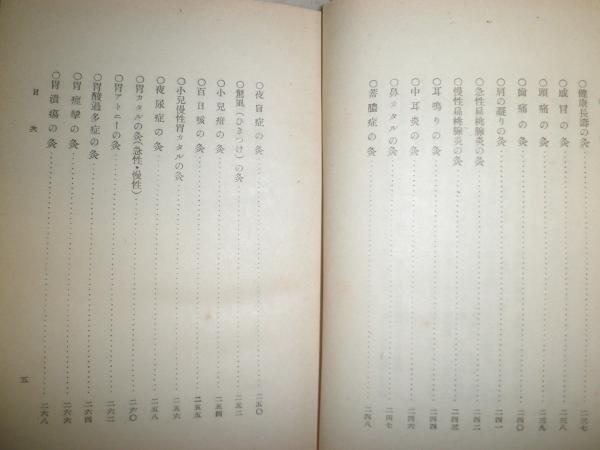 〇健康長壽の灸……二三七
〇感冒の灸……二三八
〇頭痛の灸……二三九
〇齒痛の灸……二四〇
〇肩の凝りの灸……二四一
〇急性扁桃腺炎の灸……二四二
〇慢性扁桃腺炎の灸……二四三
〇耳鳴りの灸……二四四
〇中耳炎の灸……二四六
〇鼻カタルの灸……二四七
〇蓄膿症の灸……二四八
〇夜盲症の灸……二五〇
〇驚風(ひきつけ)の灸……二五二
〇小兒疳の灸……二五四
〇百日咳の灸……二五五
〇小兒慢性胃カタルの灸……二五六
〇夜尿症の灸……二五八
〇胃カタルの灸(急性・慢性)……二六〇
〇胃アトニーの灸……二六二
〇胃酸過多症の灸……二六四
〇胃痙攣の灸……二六六
〇胃潰瘍の灸……二六八
目次
五